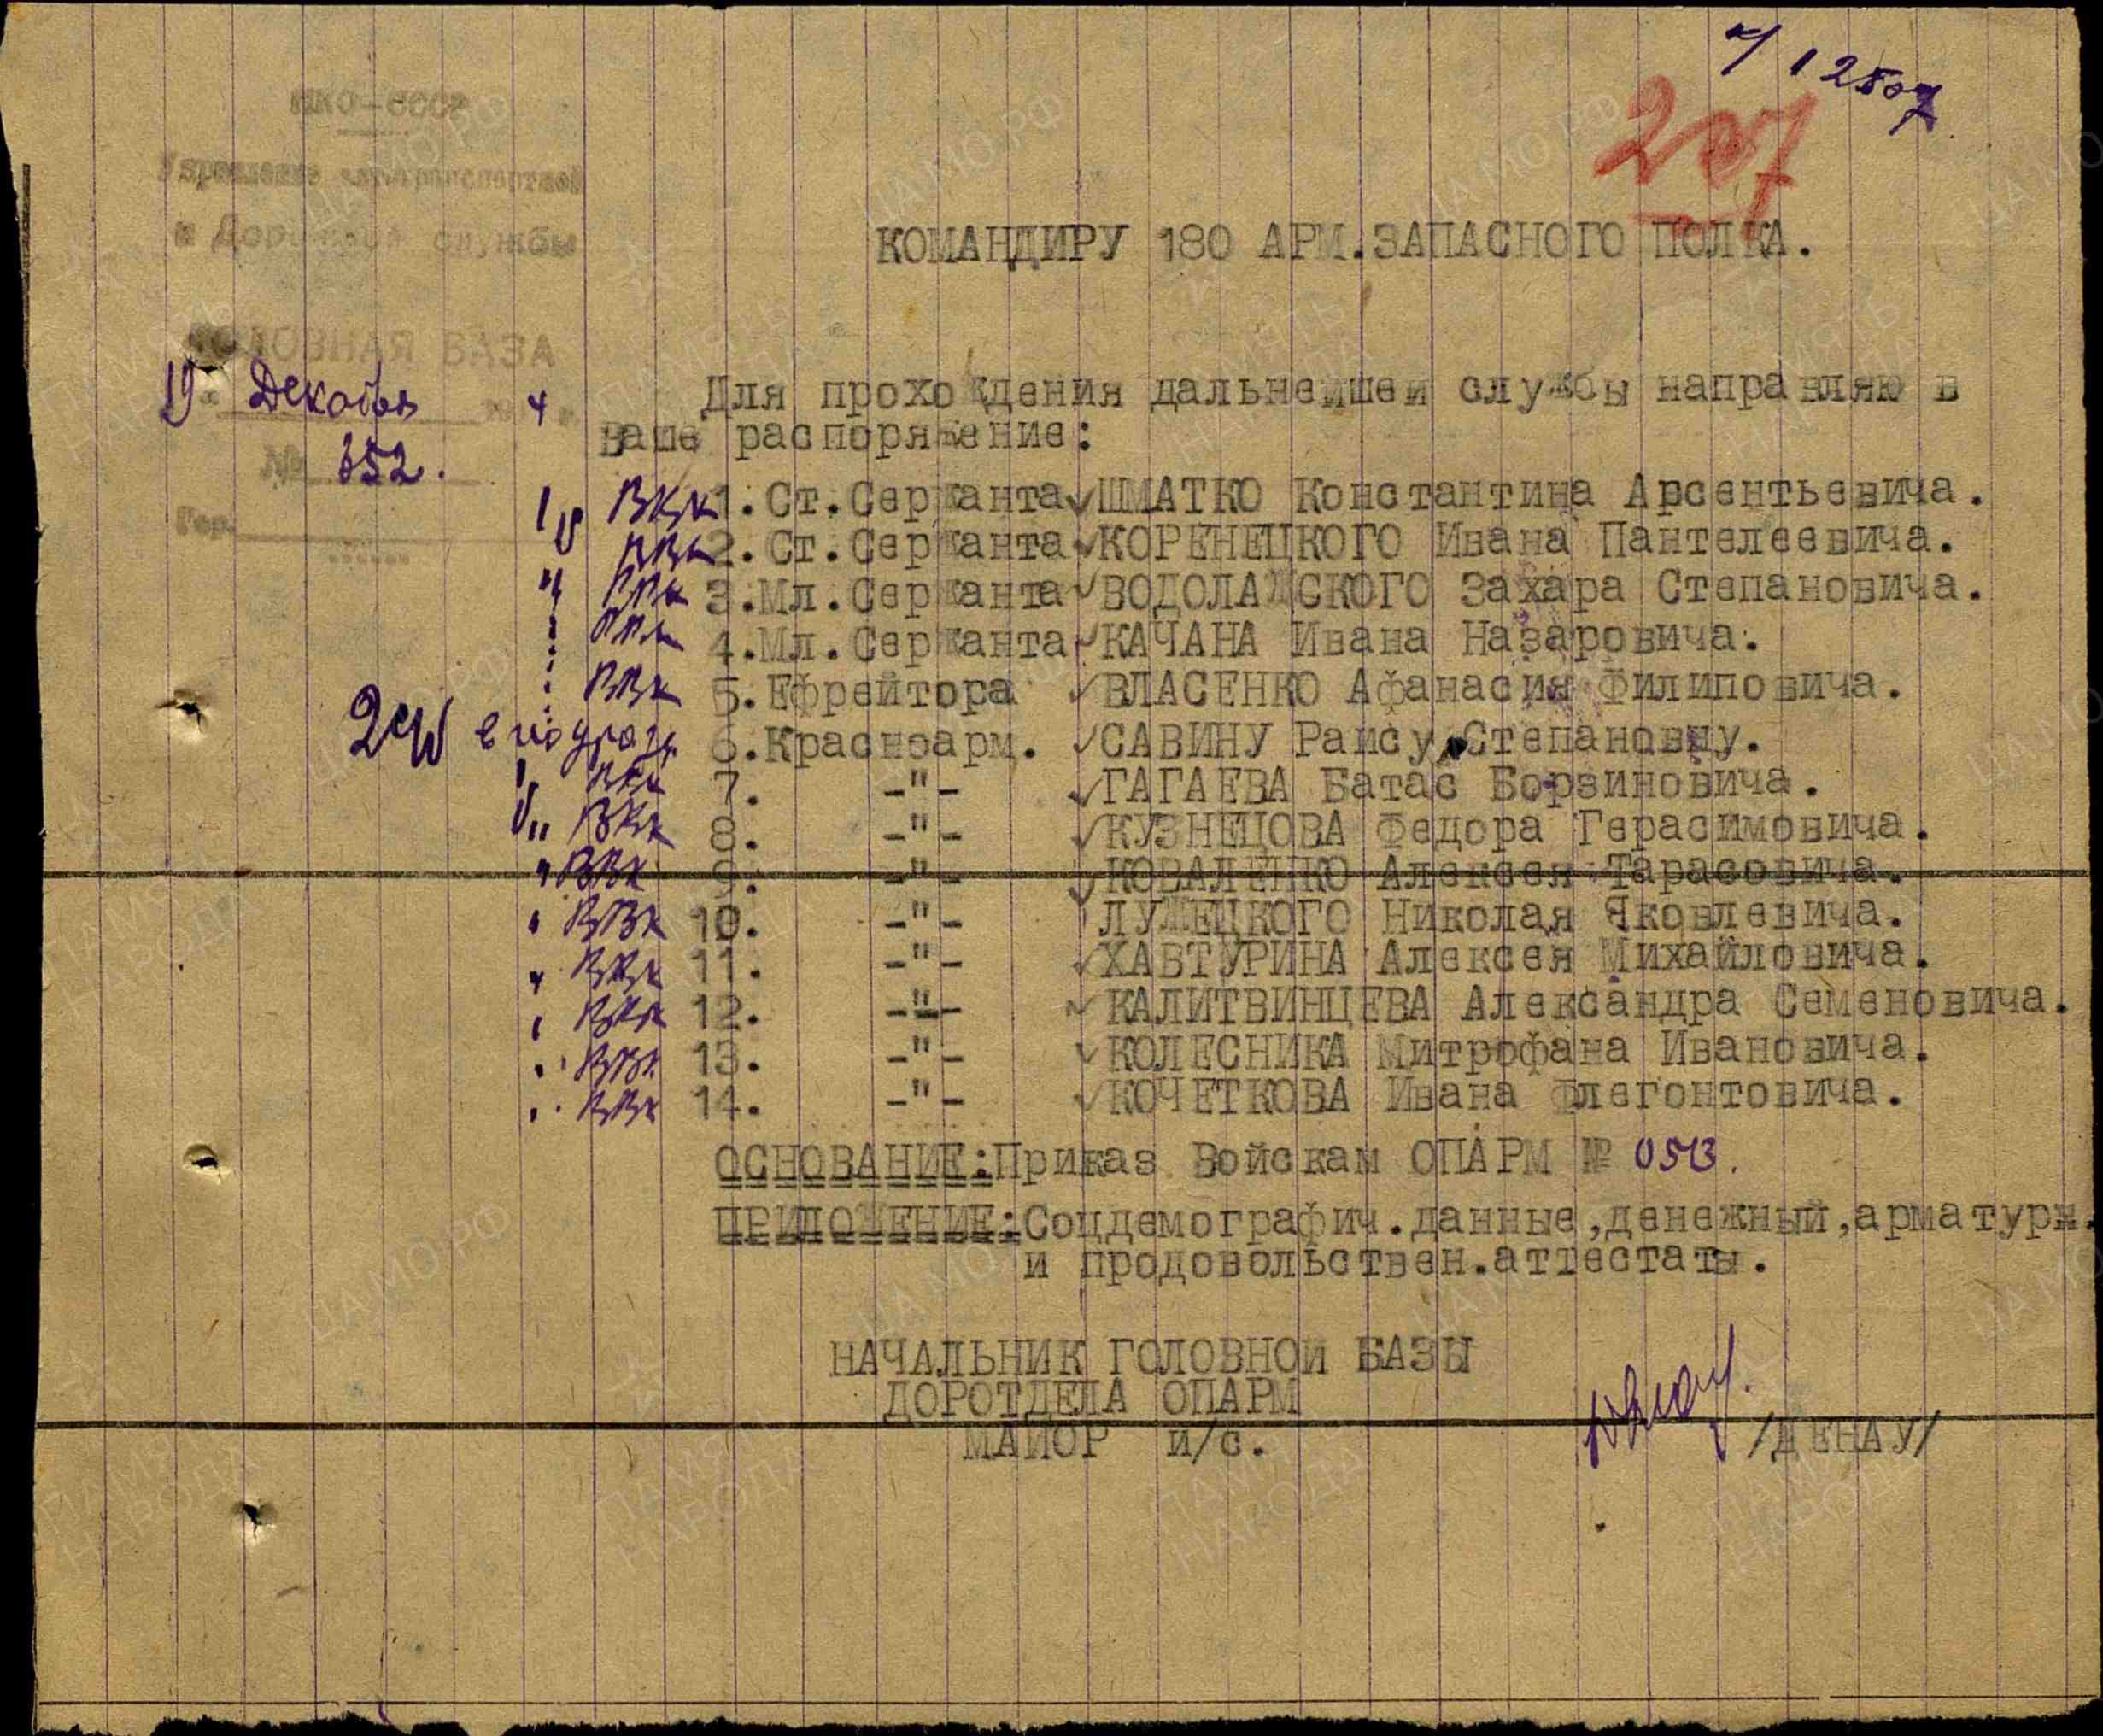 н/12507
207
НКО-СССР
Управление автотранспортной
и Дорожной службы
ГОЛОВНАЯ БАЗА
19 Декабря 4
№ 652.
Гор.
КОМАНДИРУ 180 АРМ.ЗАПАСНОГО ПОЛКА.
Для прохождения дальнейшей службы направляю в
ваше распоряжение:
1.Ст.Сержанта ШМАТКО Константина Арсентьевича.
2.Ст.Сержанта КОРЕНЕЦКОГО Ивана Пантелеевича.
3.Мл.Сержанта ВОДОЛАЖСКОГО Захара Степановича.
4.Мл.Сержанта КАЧАНА Ивана Назаровича.
5.Ефрейтора ВЛАСЕНКО Афанасия Филиповича.
6.Красноарм. САВИНУ Раису Степановну.
7. -"- ГАГАЕВА Батас Борзиновича.
8. -"- КУЗНЕЦОВА Федора Герасимовича.
9. -"- КОВАЛЕНКО Алексея Тарасовича.
10. -"- ЛУЖЕЦКОГО Николая Яковлевича.
11. -"- ХАВТУРИНА Алексея Михайловича.
12. -"- КАЛИТВИНЦЕВА Александра Семеновича.
13. -"- КОЛЕСНИКА Митрофана Ивановича.
14. -"- КОЧЕТКОВА Ивана Флегонтовича.
ОСНОВАНИЕ:Приказ Войскам ОПАРМ № 0513.
ПРИЛОЖЕНИЕ:Соцдемографич.данные,денежный,арматурн.
и продовольствен.аттестаты.
НАЧАЛЬНИК ГОЛОВНОЙ БАЗЫ
ДОРОТДЕЛА ОПАРМ
МАЙОР и/с. /ДЕНАУ/